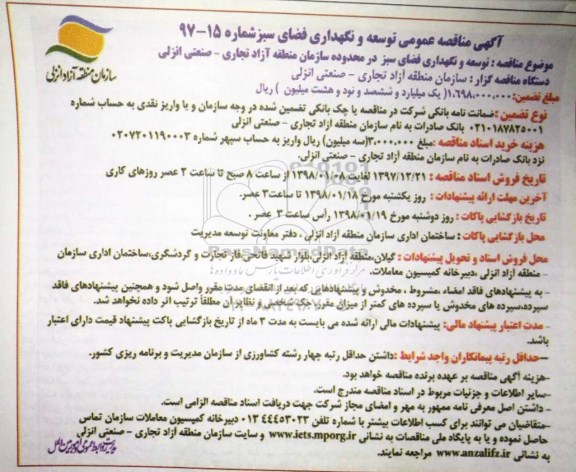 آگهی مناقصه عمومی توسعه و نگهداری فضای سبز شماره ۱۵-۹۷
سازمان منطقه آزاد انزلی
موضوع مناقصه : توسعه و نگهداری فضای سبز در محدوده سازمان منطقه آزاد تجاری - صنعتی انزلی
دستگاه مناقصه گزار : سازمان منطقه آزاد تجاری - صنعتی انزلی
مبلغ تضمین: ۱،۶۹۸،۰۰۰،۰۰۰( یک میلیارد و ششصد و نود و هشت میلیون ) ریال
نوع تضمین :ضمانت نامه بانکی شرکت در مناقصه یا چک بانکی تضمین شده در وجه سازمان و یا واریز نقدی به حساب شماره
۰۲۱۰۱۸۷۸۲۵۰۰۱ بانک صادرات به نام سازمان منطقه آزاد تجاری - صنعتی انزلی
هزینه خرید اسناد مناقصه :مبلغ ۳،۰۰۰،۰۰۰(سه میلیون) ریال واریز به حساب سپهر شماره ۰۲۰۷۲۰۱۱۹۰۰۰۳
نزد بانک صادرات به نام سازمان منطقه آزاد تجاری - صنعتی انزلی.
تاریخ فروش اسناد مناقصه : ۱۳۹۷/۱۲/۲۱ لغایت ۱۳۹۸/۰۱/۰۸ از ساعت ۸ صبح تا ساعت ۲ عصر روزهای کاری
آخرین مهلت ارائه پیشنهادات : روز یکشنبه مورخ ۱۳۹۸/۰۱/۱۸ تا ساعت۳ عصر.
تاریخ بازگشایی پاکات : روز دوشنبه مورخ ۱۳۹۸/۰۱/۱۹ رأس ساعت ۳ عصر .
محل بازگشایی پاکات : ساختمان اداری سازمان منطقه آزاد انزلی ، دفتر معاونت توسعه مدیریت
محل فروش اسناد و تحویل پیشنهادات : گیلان،منطقه آزاد انزلی،بلوار شهید فالحی،فاز تجارت و گردشگری،ساختمان اداری سازمان
منطقه آزاد انزلی ،دبیرخانه کمیسیون معاملات.
- به پیشنهادهای فاقد امضاء ،مشروط ، مخدوش و پیشنهادهایی که بعد از انقضای مدت مقرر واصل شود و همچنین پیشنهادهای فاقد
سپرده،سپرده های مخدوش یا سپرده های کمتر از میزان مقرر، چک شخصی و نظایر آن مطلقاً ترتیب اثر داده نخواهد شد.
- مدت اعتبار پیشنهاد مالی: پیشنهادات مالی ارائه شده می بایست به مدت ۳ ماه از تاریخ بازگشایی پاکت پیشنهاد قیمت دارای اعتبار
باشد.
-حداقل رتبه پیمانکاران واجد شرایط :داشتن حداقل رتبه چهار رشته کشاورزی از سازمان مدیریت و برنامه ریزی کشور.
-هزینه آگهی مناقصه بر عهده برنده مناقصه خواهد بود.
-سایر اطلاعات و جزئیات مربوط در اسناد مناقصه مندرج است.
- داشتن اصل معرفی نامه ممهور به مهر و امضای مجاز شرکت جهت دریافت اسناد مناقصه الزامی است.
-متقاضیان می توانند برای کسب اطلاعات بیشتر با شماره تلفن ۴۴۴۵۳۰۲۳ ۰۱۳ دبیرخانه کمیسیون معاملات سازمان تماس
حاصل نموده و یا به پایگاه ملی مناقصات به نشانی www.iets.mporg.ir و سایت سازمان منطقه آزاد تجاری - صنعتی انزلی
به نشانی www.anzalifz.ir مراجعه نمایند.